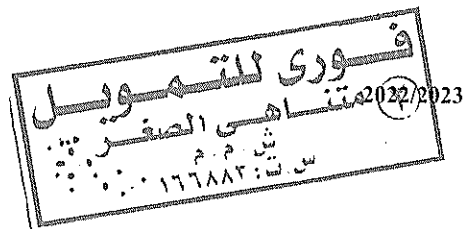 فورى للتمويل
متناهى الصغر
2022/2023
ش . م . م
س . ت : ١٦٦٨٨٣